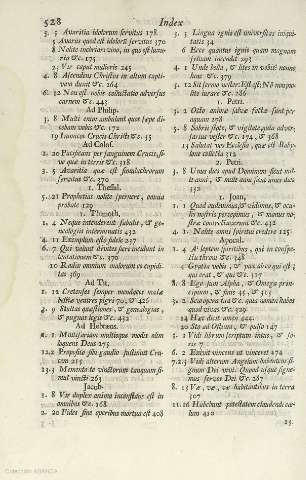 528 Index
3. 5 Avaritia idolorum servitus 178
5 Avarus quod est idolorū servitus 370
8 Nolite inebriari vino, in quo est luxu-
ria &c. 175
4. 8 Ascendens Christus in altum capti-
vam duxit &c. 264
6. 12 Non est nobis colluctatio adversus
carnem &c. 445
Ad Philip.
3. 8 Multi enim ambulant quos sæpe di-
cebam vobis 179
19 Inimicos Crucis Christi &c. 55
Ad Coloss.
1. 20 Pacificans per sanguinem Crucis, si-
ve quæ in terris &c. 138
3. 5 Avaritia quæ est simulachrorum
servitus &c. 370
1. Thessal.
5. 21 Prophetias nolite spernere, omnia
probate 129
1. Timoth.
1. 4 Neque intenderent fabulis, & ge-
nealogiis interminatis 432
4. 12 Exemplum esto fidelium 237
6. 7 Qui volunt divites fieri incidunt in
tentationem &c. 370
10 Radix omnium malorum est cupidi-
tas 369
Ad Tit.
1. 12 Cretenses semper mendaces malæ
bestiæ ventres pigri 70, & 426
3. 9 Stultas quæstiones, & genealogias,
& pugnas legis &c. 432
Ad Hebræos.
1. 1 Multifariam multisque modis olim
loquens Deus 275
12. 2 Proposito sibi gaudio sustinuit Cru-
cem 265
13. 3 Mementote vinctorum tanquam si-
mul vincti 263
Jacob.
1. 8 Vir duplex animo inconstans est in
omnibus &c. 168
2. 20 Fides sine operibus mortua est 408
3. 5 Lingua ignis est universitas iniqui-
tatis 34
6 Ecce quantus ignis quam magnam
silvam incendit 293
4. 1 Unde bella, & lites in vobis nonne
hinc &c. 379
5. 12 Sit sermo vester Est est: Nō non: no-
lite jurare &c. 386
1. Petri.
3. 20 Octo animæ salvæ factæ sunt per
aquam 278
5. 8 Sobrii estote, & vigilate quia adver-
sarius vester &c. 174, & 368
13 Salutat vos Ecclesia, quæ est Babylo-
lone collecta 331
2. Petri.
3. 8 Unus dies apud Dominum sicut mil-
le anni, & mille anni sicut unus dies
132
1. Joan.
1. 1 Quod audivimus, & vidimus, & ocu-
lis nostris perspeximus, & manus no-
stræ contrectaverunt 432
4. 1 Nolite omni spiritui credere 129
Apocal.
1. 4 A septem spiritibus, qui in conspe-
ctu throni &c. 348
4 Gratia vobis, & pax ab eo qui est,
qui erat, & qui &c. 317
8. 8 Ego sum Alpha, & Omega prin-
cipium, & finis 45, & 315
3. 2 Scio opera tua &c. quia nomen habes
quod vivas &c. 329
14 Hæc dicit amen 444.
20 Sto ad Ostium, & pulso 147
5. 1 Vidi librum scriptum intus, & fo-
ris 7
6. 2 Exivit vincens ut vinceret 174
7. 2. 3 Vidi alterum Angelum habentem si-
gnum Dei vivi: Quoad usque signe-
mus servos Dei &c. 267
8. 13 Væ, væ, væ habitantibus in terra
307
11. 16 Habebunt potestatem claudendi cæ-
lum 410